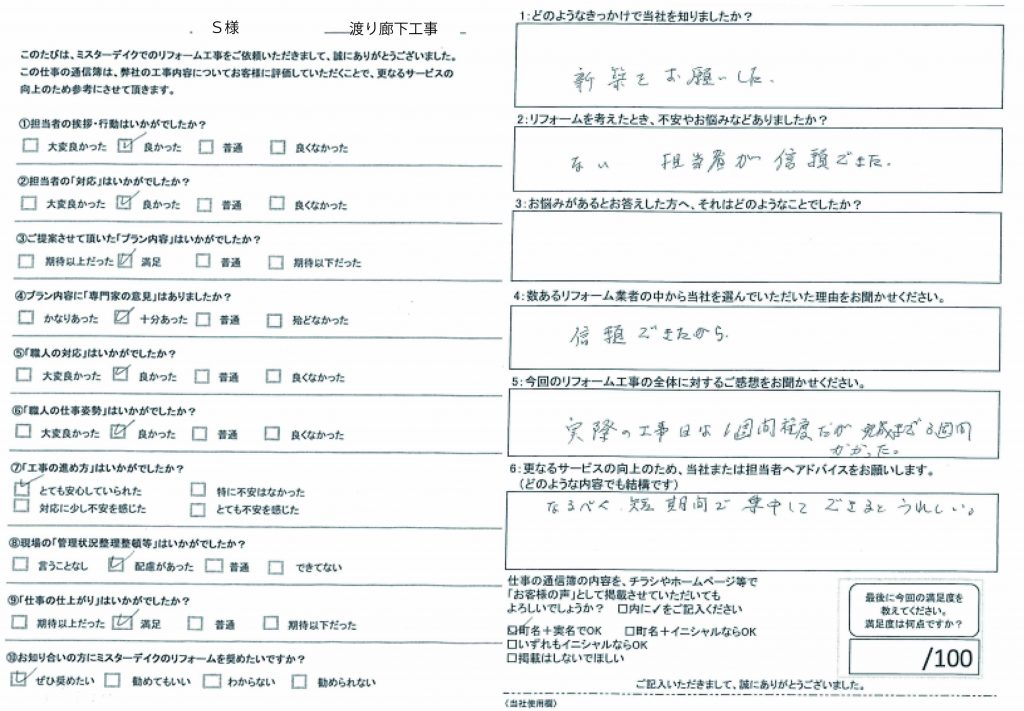 S様　渡り廊下工事
このたびは、ミスターデイクでのリフォーム工事をご依頼いただきまして、誠にありがとうございました。
この仕事の通信簿は、弊社の工事内容についてお客様に評価していただくことで、更なるサービスの
向上のため参考にさせて頂きます。
①担当者の挨拶・行動はいかがでしたか?
□ 大変良かった ☑ 良かった □ 普通 □ 良くなかった
②担当者の「対応」はいかがでしたか?
□ 大変良かった ☑ 良かった □ 普通 □ 良くなかった
③ご提案させて頂いた「プラン内容」はいかがでしたか?
□ 期待以上だった ☑ 満足 □ 普通 □ 期待以下だった
④プラン内容に「専門家の意見」はありましたか?
□ かなりあった ☑ 十分あった □ 普通 □ 殆どなかった
⑤「職人の対応」はいかがでしたか?
□ 大変良かった ☑ 良かった □ 普通 □ 良くなかった
⑥「職人の仕事姿勢」はいかがでしたか?
□ 大変良かった ☑ 良かった □ 普通 □ 良くなかった
⑦「工事の進め方」はいかがでしたか?
☑ とても安心していられた □ 特に不安はなかった
□ 対応に少し不安を感じた □ とても不安を感じた
⑧現場の「管理状況整理整頓等」はいかがでしたか?
□ 言うことなし ☑ 配慮があった □ 普通 □ できてない
⑨「仕事の仕上がり」はいかがでしたか?
□ 期待以上だった ☑ 満足 □ 普通 □ 期待以下だった
⑩お知り合いの方にミスターデイクのリフォームを奨めたいですか?
☑ ぜひ奨めたい □ 勧めてもいい □ わからない □ 勧められない
1:どのようなきっかけで当社を知りましたか?
新築をお願いした.
2:リフォームを考えたとき、不安やお悩みなどありましたか?
ない 担当者が信頼できた.
3:お悩みがあるとお答えした方へ、それはどのようなことでしたか?
4:数あるリフォーム業者の中から当社を選んでいただいた理由をお聞かせください。
信頼できたから.
5:今回のリフォーム工事の全体に対するご感想をお聞かせください。
実際の工事は 1週間程度だが 完成まで 3週間
かかった。
6:更なるサービスの向上のため、当社または担当者へアドバイスをお願いします。
(どのような内容でも結構です)
なるべく 短期間で 集中して できるとうれしい。
仕事の通信簿の内容を、チラシやホームページ等で
「お客様の声」として掲載させていただいても
よろしいでしょうか? □内に✓をご記入ください
☑町名+実名でOK □町名+イニシャルならOK
□いずれもイニシャルならOK
□掲載はしないでほしい
最後に今回の満足度を
教えてください。
満足度は何点ですか?
/100
ご記入いただきまして、誠にありがとうございました。
(当社使用欄)